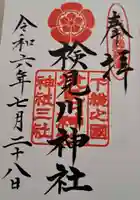 奉拝
検見川神社
下総之國
神祇三社
令和六年七月二十八日